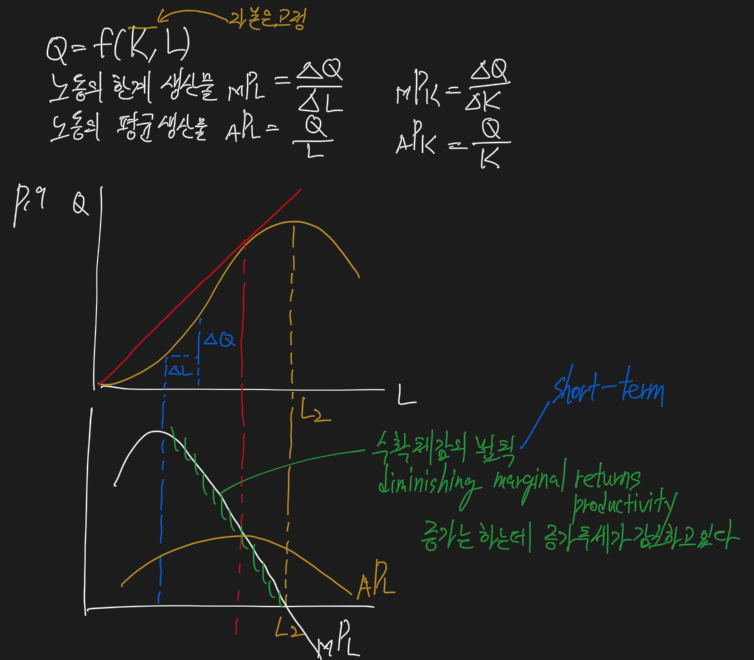 자본은 고정
Q = f(K̄, L)
노동의 한계 생산물 MPL = ΔQ/ΔL MPK = ΔQ/ΔK
노동의 평균생산물 APL = Q/L APK = Q/K
P.9 Q
ΔQ
ΔL
L
L2
short-term
수확체감의 법칙
diminishing marginal returns
productivity
증가는 하는데 증가폭세가 감소하고 있다
APL
L2
MPL